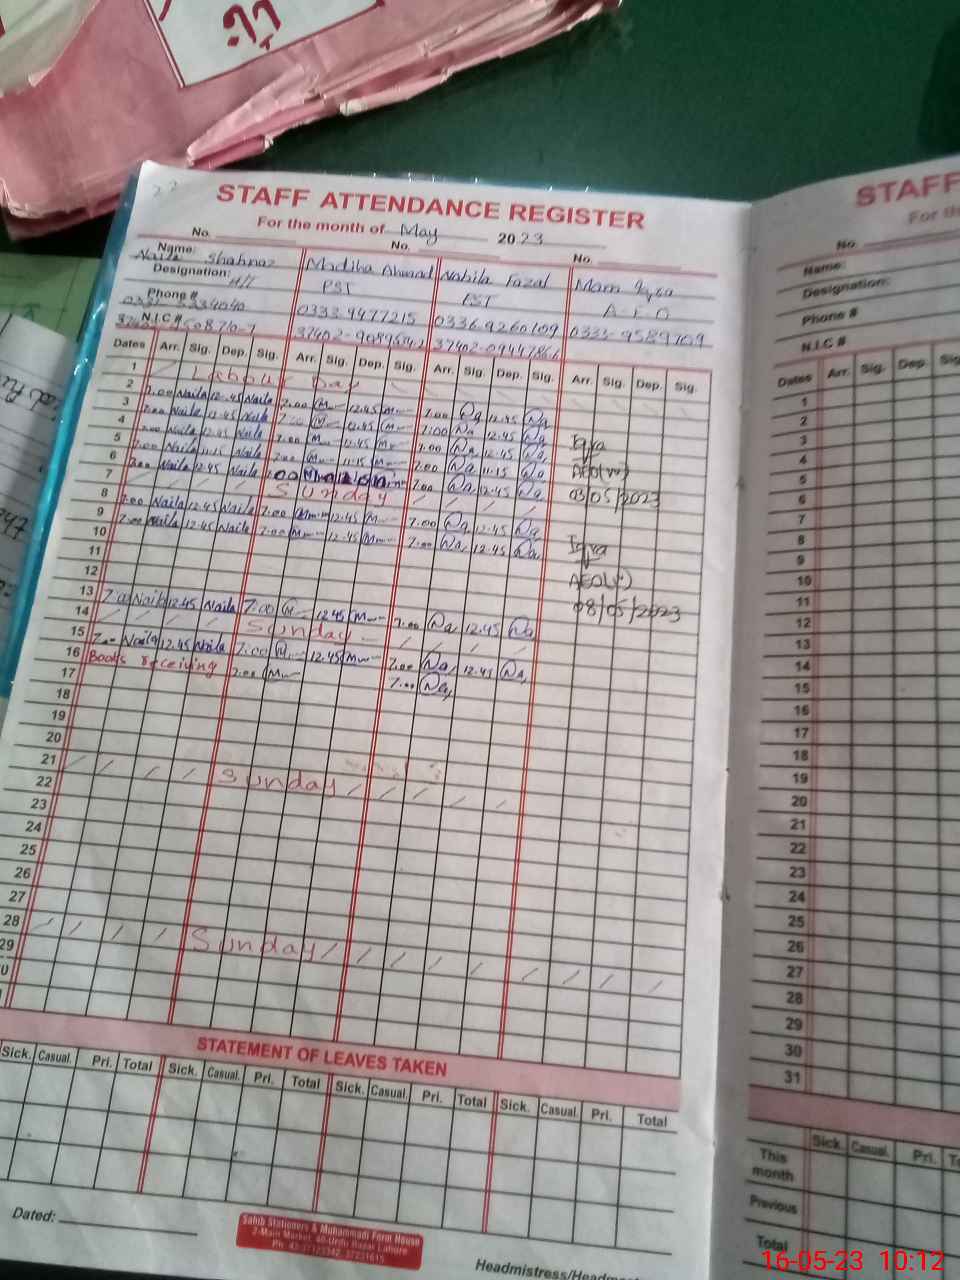 STAFF ATTENDANCE REGISTER
For the month of May 2023
No. No. No.
Name: Naila Shahnaz Madiha Ahmad Nabila Fazal Mam Iqra
Designation: H/T PST EST A-E-O
Phone # 0333-4477215 0336 9260109 0333-9589709
N.I.C #
Dates Arr. Sig. Dep. Sig. Arr. Sig. Dep. Sig. Arr. Sig. Dep. Sig. Arr. Sig. Dep. Sig.
1 Labour Day
2 7.00 Naila 12.45 Naila 7.00 M 12.45 M 7.00 Na 12.45 Na
3 7.00 Naila 12.45 Naila 7.00 M 12.45 M 7:00 Na 12.45 Na Iqra
4 7.00 Naila 12.45 Naila 7.00 M 12.45 M 7.00 Na 12.45 Na AEO(w)
5 7.00 Naila 11.15 Naila 7.00 M 11.15 M 7.00 Na 11.15 Na 03/05/2023
6 7.00 Naila 12.45 Naila 7.00 Na 12.45 Na
7 / / / / Sunday / / /
8 7.00 Naila 12.45 Naila 7.00 M 12.45 M 7.00 Na 12.45 Na Iqra
9 7.00 Naila 12.45 Naila 7.00 M 12.45 M 7.00 Na 12.45 Na AEO(w)
10 08/05/2023
11
12
13 7.00 Naila 12.45 Naila 7.00 M 12.45 M 7.00 Na 12.45 Na
14 / / / / Sunday / / / /
15 7.00 Naila 12.45 Naila 7.00 M 12.45 M 7.00 Na 12.45 Na
16 Books receiving 7.00 M 7.00 Na
17
18
19
20
21 / / / / Sunday / / / / /
22
23
24
25
26
27
28 / / / / Sunday / / / / / / / / / /
29
STATEMENT OF LEAVES TAKEN
Sick. Casual. Pri. Total Sick. Casual. Pri. Total Sick. Casual. Pri. Total Sick. Casual. Pri. Total
Dated:
Sahib Stationers & Muhammadi Form House
2-Main Market, 40-Urdu Bazar Lahore
Headmistress/Headm
STAFF
For th
No.
Name:
Designation:
Phone #
N.I.C #
Dates Arr. Sig. Dep. Sig.
1
2
3
4
5
6
7
8
9
10
11
12
13
14
15
16
17
18
19
20
21
22
23
24
25
26
27
28
29
30
31
Sick. Casual. Pri. T
This month
Previous
Total
16-05-23 10:12